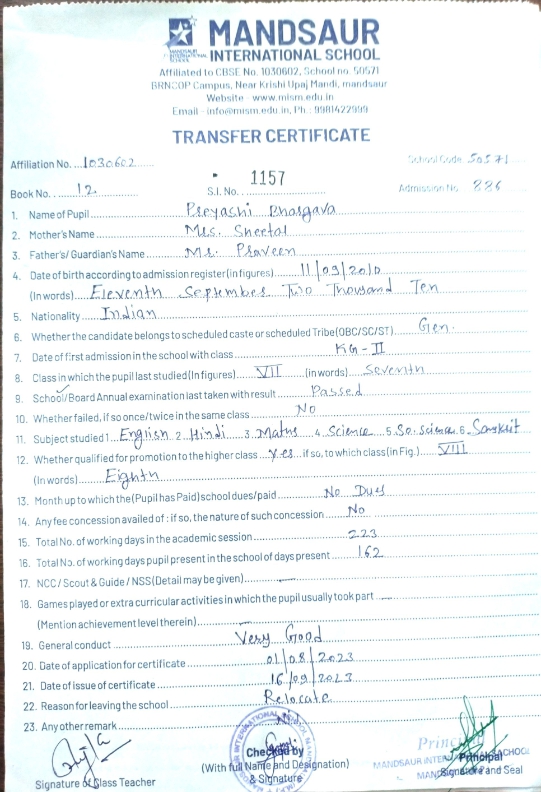 MANDSAUR
INTERNATIONAL SCHOOL
Affiliated to CBSE No. 1030602, School no. 50571
BRNCOP Campus, Near Krishi Upaj Mandi, mandsaur
Website - www.mism.edu.in
Email - info@mism.edu.in, Ph.: 9981422999
TRANSFER CERTIFICATE
Affiliation No. 1030602 School Code 50571
Book No. 12 S.I. No. 1157 Admission No. 886
1. Name of Pupil Preyashi Bhargava
2. Mother's Name Mrs. Sheetal
3. Father's/ Guardian's Name Mr. Praveen
4. Date of birth according to admission register (in figures) 11/09/2010
(In words) Eleventh September Two Thousand Ten
5. Nationality Indian
6. Whether the candidate belongs to scheduled caste or scheduled Tribe (OBC/SC/ST) Gen.
7. Date of first admission in the school with class KG-II
8. Class in which the pupil last studied (In figures) VII (in words) Seventh
9. School/Board Annual examination last taken with result Passed
10. Whether failed, if so once/twice in the same class No
11. Subject studied 1. English 2. Hindi 3. Maths 4. Science 5. So. Science 6. Sanskrit
12. Whether qualified for promotion to the higher class Yes if so, to which class (in Fig.) VIII
(In words) Eighth
13. Month up to which the (Pupil has Paid) school dues/paid No Dues
14. Any fee concession availed of : if so, the nature of such concession No
15. Total No. of working days in the academic session 223
16. Total No. of working days pupil present in the school of days present 162
17. NCC/ Scout & Guide / NSS (Detail may be given) —
18. Games played or extra curricular activities in which the pupil usually took part —
(Mention achievement level therein) —
19. General conduct Very Good
20. Date of application for certificate 01/08/2023
21. Date of issue of certificate 16/09/2023
22. Reason for leaving the school Relocate
23. Any other remark Nil
Checked by
(With full Name and Designation)
& Signature
Signature of Class Teacher
Principal
Signature and Seal